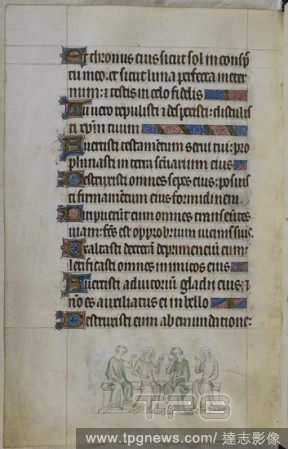 Et thronus eius sicut sol in consp
tu meo: et sicut luna perfecta in eter
num: et testis in celo fidelis
u vero repulisti et despexisti: distulis
ti xpm tuum
uertisti testamentum serui tui: pro
phanasti in terra sanctuarium eius
estruxisti omnes sepes eius: posuis
ti firmamentum eius formidinem
iripuerunt eum omnes transeuntes
uiam: factus est opprobrium uicinis suis
xaltasti dexteram deprimentium eum:
letificasti omnes inimicos eius
uertisti adiutorium gladii eius: et
non es auxiliatus ei in bello
estruxisti eum ab emundatione:
TPG
www.tpgnews.com/ 達志影像